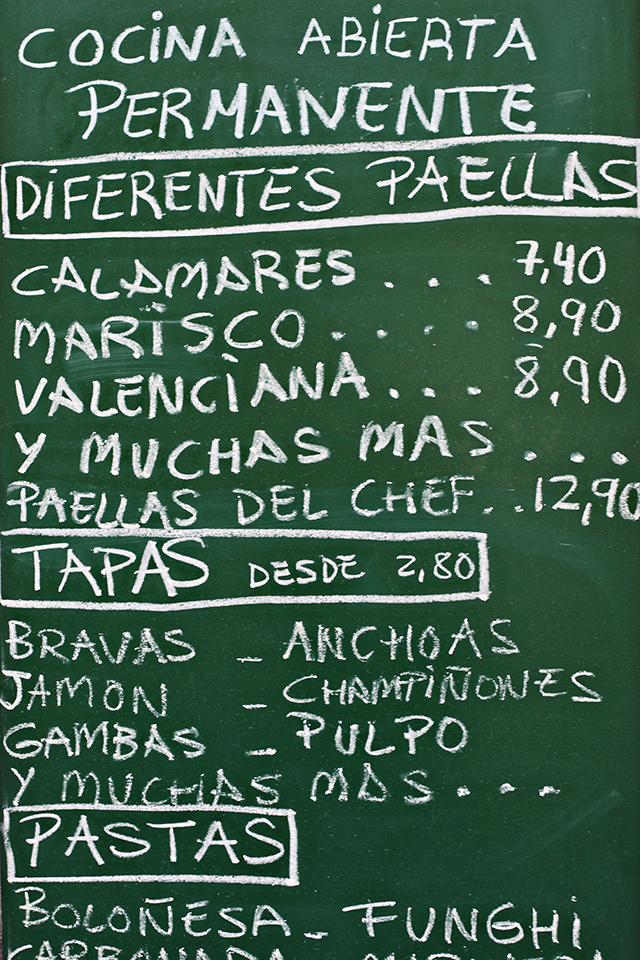 COCINA ABIERTA
PERMANENTE
DIFERENTES PAELLAS
CALAMARES . . . . 7,40
MARISCO . . . . 8,90
VALENCIANA . . . . 8,90
Y MUCHAS MAS . . . .
PAELLAS DEL CHEF . . 12,90
TAPAS DESDE 2,80
BRAVAS - ANCHOAS
JAMON - CHAMPIÑONES
GAMBAS - PULPO
Y MUCHAS MAS . . .
PASTAS
BOLOÑESA - FUNGHI